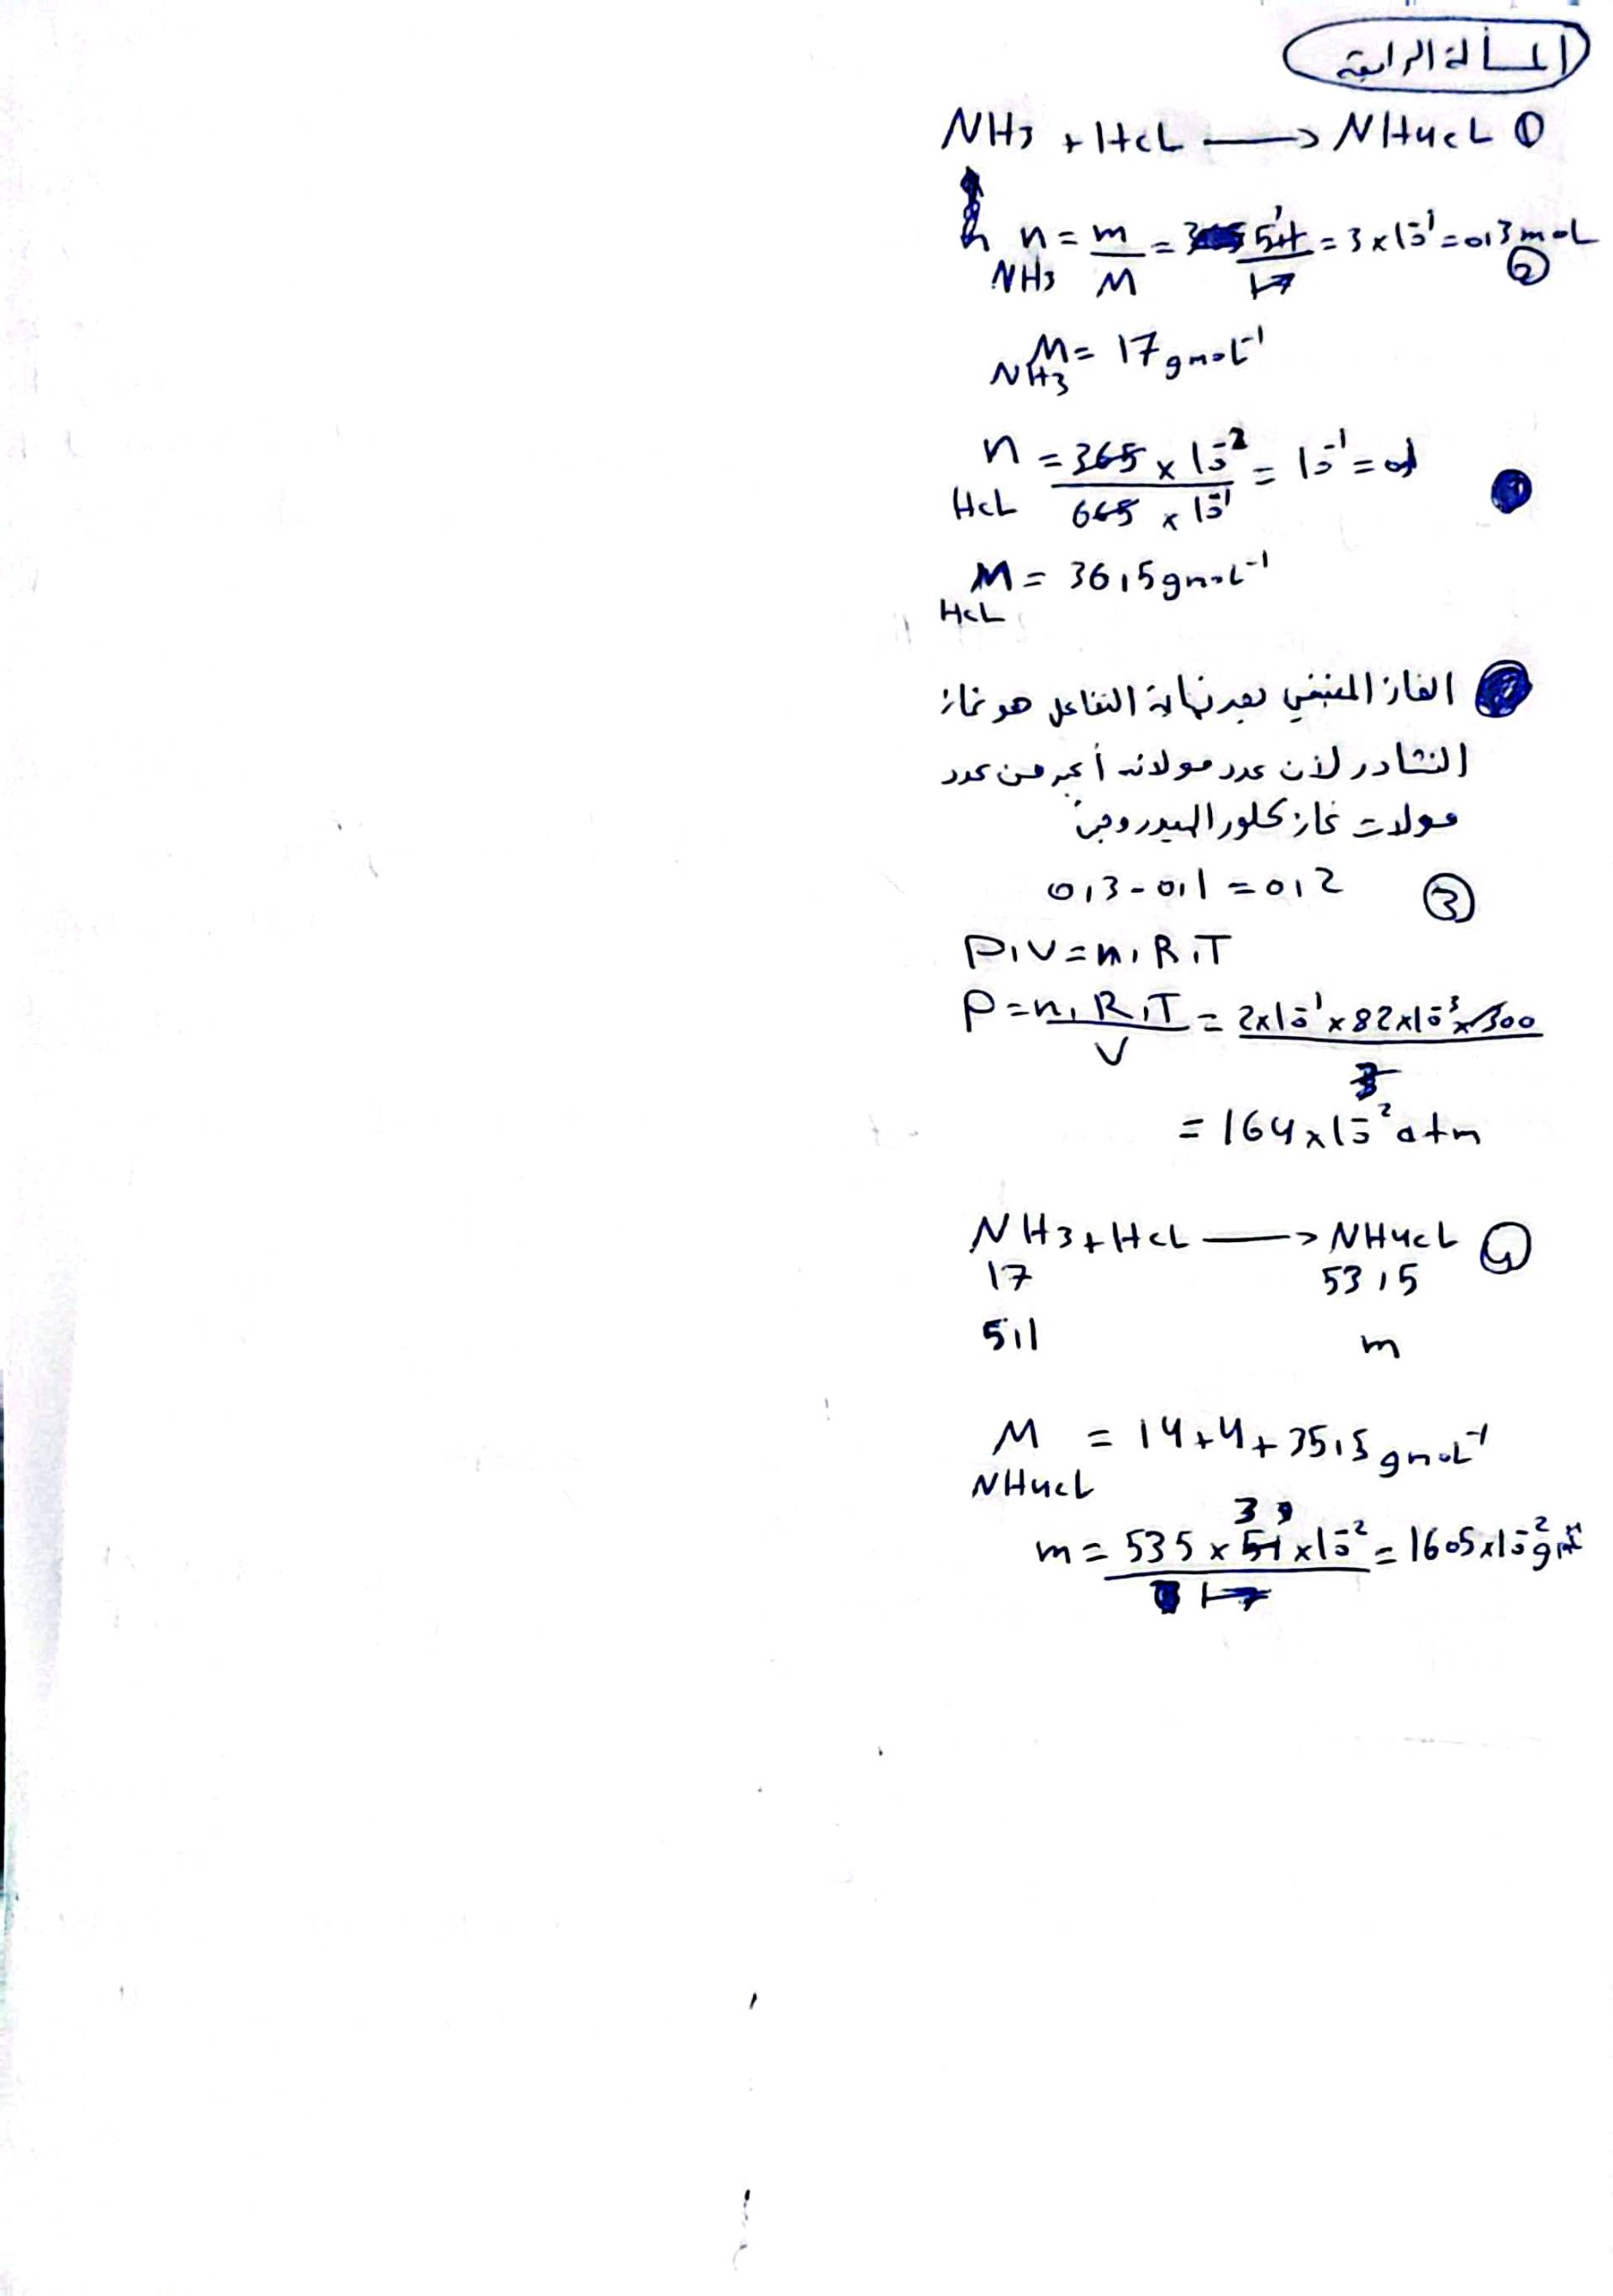 المسألة الرابعة
NH3 + HcL → NH4cL ①
n = m/M = 5,1/17 = 3 x 10^-1 = 0,3 moL ②
NH3
M = 17 g moL^-1
NH3
n = 365 x 10^-2 / 665 x 10^-1 = 10^-1 = 0,1
HcL
M = 36,5 g moL^-1
HcL
الغاز المتبقي بعد نهاية التفاعل هو غاز
النشادر لأن عدد مولاته أكبر من عدد
مولات غاز كلور الهيدروجين
0,3 - 0,1 = 0,2 ③
P,V = n, R,T
P = n, R,T / V = 2x10^-1 x 82x10^-3 x 300 / 3
= 164 x 10^-2 atm
NH3 + HcL → NH4cL ④
17 53,5
5,1 m
M = 14 + 4 + 35,5 g moL^-1
NH4cL
3
m = 535 x 51 x 10^-2 / 17 = 1605 x 10^-2 g